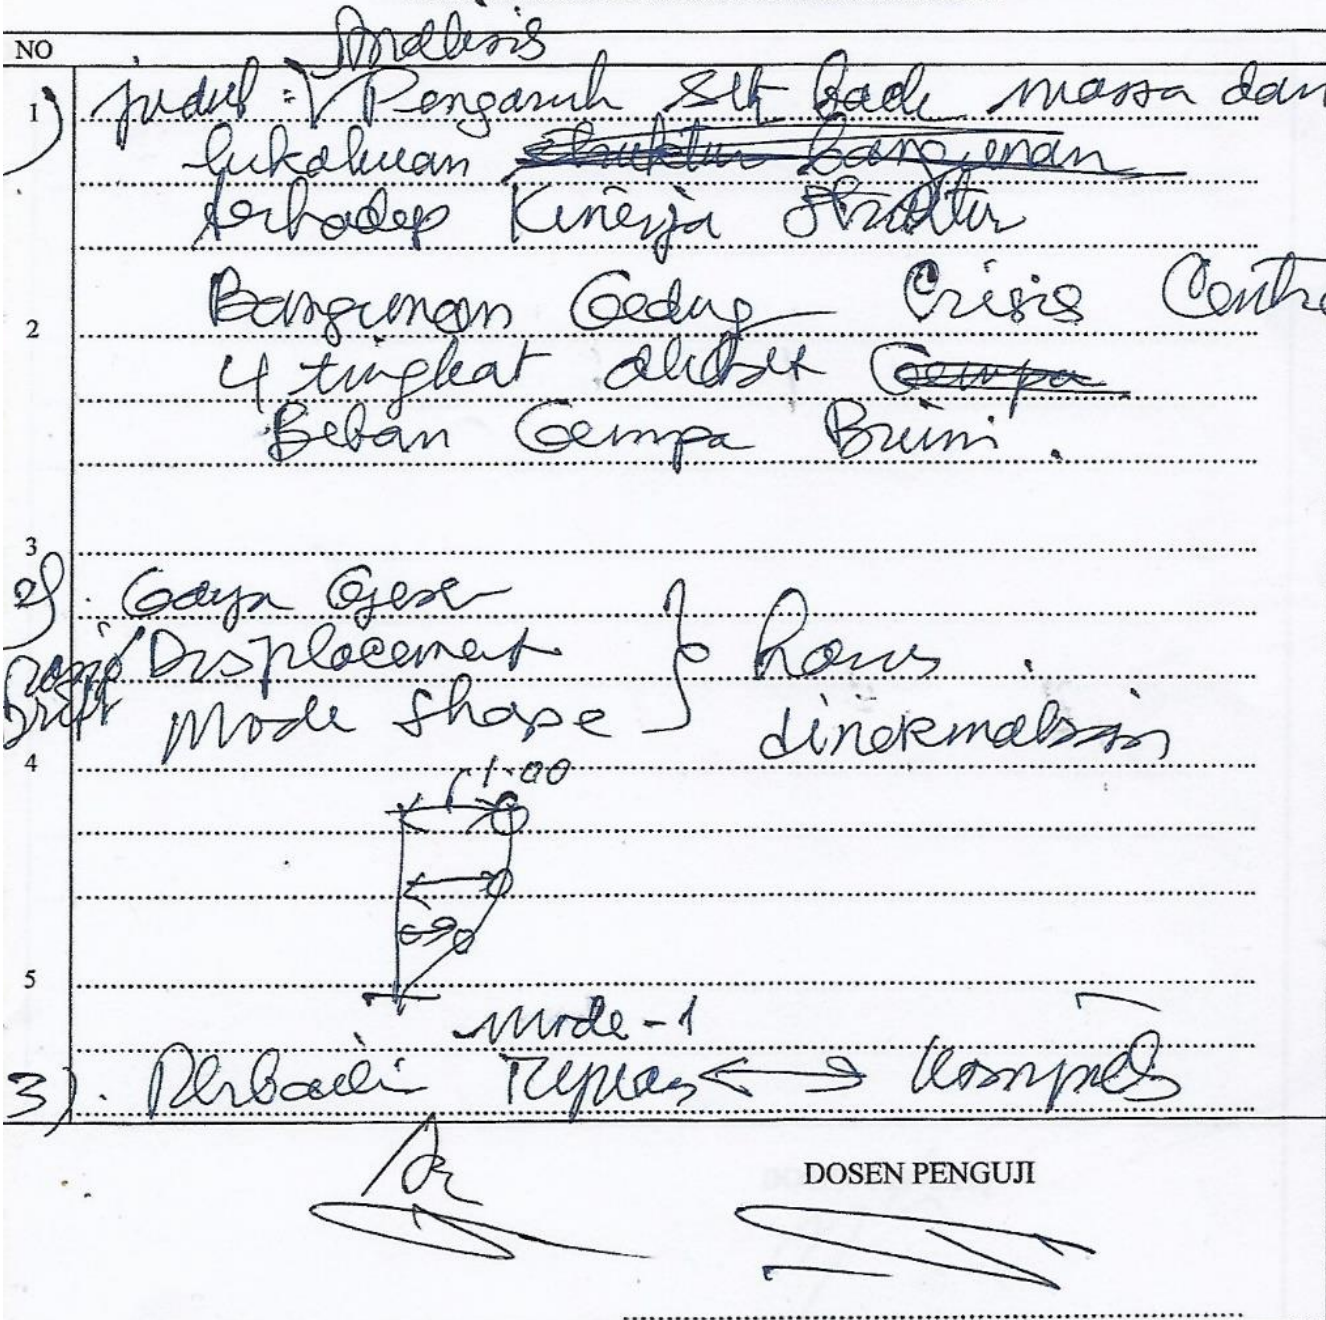 NO
Analisis
1) judul : Pengaruh Set back massa dan
kekakuan struktur bangunan
terhadap Kinerja Struktur
2 Bangunan Gedung Crisis Centre
4 tingkat akibat Gempa
Beban Gempa Bumi.
3
2). Gaya Geser
Displacement } harus
Drift Mode Shape dinormalisasi
4
1.00
5
Mode-1
3). Perbaiki Tujuan <-> Kesimpulan
DOSEN PENGUJI